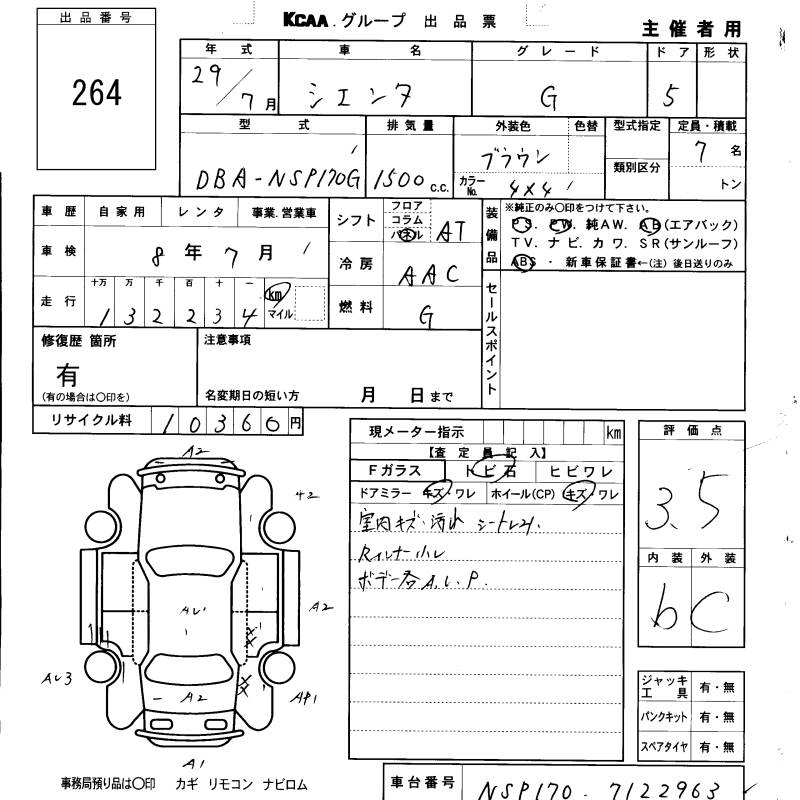 出品番号
264
KCAA.グループ 出品票
主催者用
年式 車名 グレード ドア 形状
29/7月 シエンタ G 5
型式 排気量 外装色 色替 型式指定 定員・積載
DBA-NSP170G 1500 c.c. ブラウン 7名
カラーNo. 4X4 類別区分 トン
車歴 自家用 レンタ 事業.営業車
シフト フロア コラム パネル AT
装備品 ※純正のみ○印をつけて下さい。
PS. PW. 純AW. AB(エアバック)
TV. ナビ. カワ. SR(サンルーフ)
ABS ・ 新車保証書←(注) 後日送りのみ
車検 8年7月
冷房 AAC
走行 十万 万 千 百 十 一 km マイル
132234
燃料 G
セールスポイント
修復歴 箇所
有
(有の場合は○印を)
注意事項
名変期日の短い方 月 日まで
リサイクル料 10360円
現メーター指示 km
【査定員記入】
Fガラス トビ石 ヒビワレ
ドアミラー キズ・ワレ ホイール(CP) キズ・ワレ
室内キズ・汚れ
ボデー各A.U.P.
評価点
3.5
内装 外装
b C
A2
A2
A2
AU
AU3
A2
AP1
A1
ジャッキ工具 有・無
パンクキット 有・無
スペアタイヤ 有・無
事務局預り品は○印 カギ リモコン ナビロム
車台番号 NSP170-7122963